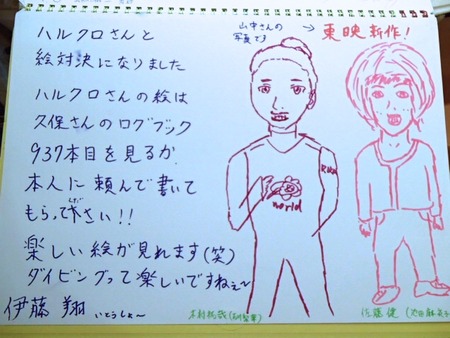 ハルクロさんと
絵対決になりました
ハルクロさんの絵は
久保さんのログブック
937本目を見るか、
本人に頼んで書いて
もらって下さい!!
くだ
楽しい絵が見れます(笑)
ダイビングって楽しいですねぇ~
伊藤 翔 いとうしょ~
山中さんの
写真です
→ 東映新作!
world
佐藤健